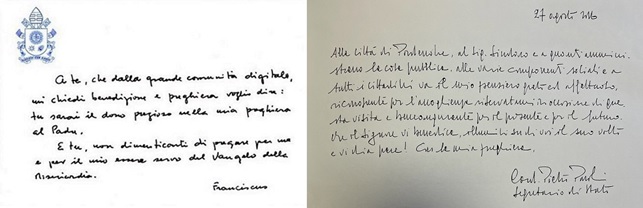 A te, che dalla grande comunità digitale,
mi chiedi benedizione e preghiera voglio dire:
tu sarai il dono prezioso nella mia preghiera
al Padre.
E tu, non dimenticarti di pregare per me
e per il mio essere servo del Vangelo della
Misericordia.
Franciscus
27 agosto 2016
Alla città di Pordenone, al Sig. Sindaco e a quanti ammini-
strano la cosa pubblica, alle varie componenti sociali e a
tutti i cittadini va il mio pensiero grato ed affettuoso,
riconoscente per l'accoglienza riservatami in occasione di que
sta visita e beneaugurante per il presente e per il futuro.
Che il Signore vi benedica, illumini su di voi il suo volto
e vi dia pace! Con la mia preghiera.
Card. Pietro Parolin
Segretario di Stato